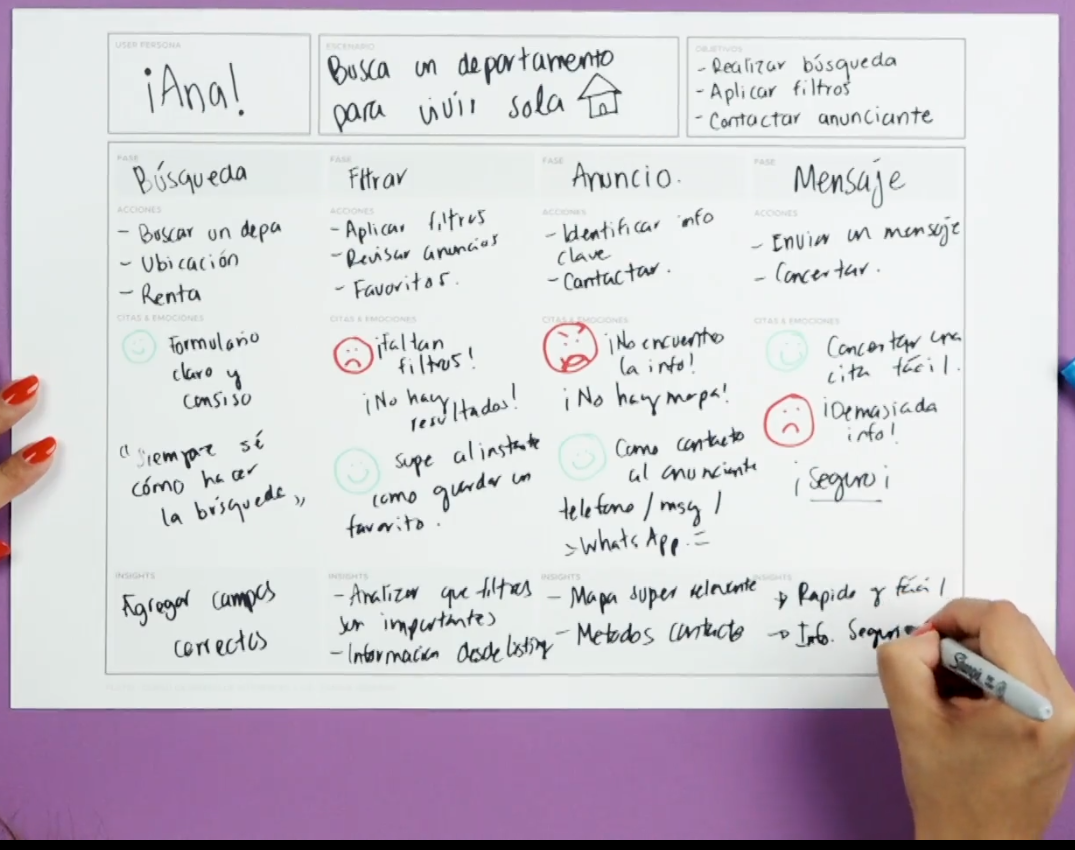 USER PERSONA
¡Ana!
ESCENARIO
Busca un departamento
para vivir sola
OBJETIVOS
- Realizar búsqueda
- Aplicar filtros
- Contactar anunciante
FASE
Búsqueda
ACCIONES
- Buscar un depa
- Ubicación
- Renta
CITAS & EMOCIONES
Formulario
claro y
consiso
"Siempre sé
cómo hacer
la búsqueda"
INSIGHTS
Agregar campos
correctos
FASE
Filtrar
ACCIONES
- Aplicar filtros
- Revisar anuncios
- Favoritos.
CITAS & EMOCIONES
¡Faltan
filtros!
¡No hay
resultados!
supe al instante
como guardar un
favorito.
INSIGHTS
- Analizar que filtros
son importantes
- Información desde listing
FASE
Anuncio.
ACCIONES
- Identificar info
clave
- Contactar.
CITAS & EMOCIONES
¡No encuentro
la info!
¡No hay mapa!
Como contacto
al anunciante
telefono / msg /
> WhatsApp. =
INSIGHTS
- Mapa super relevante
- Metodos contacto
FASE
Mensaje
ACCIONES
- Enviar un mensaje
- Concertar.
CITAS & EMOCIONES
Concertar una
cita fácil.
¡Demasiada
info!
¡Seguro¡
INSIGHTS
→ Rapido y fácil
→ Info.
Sharpie